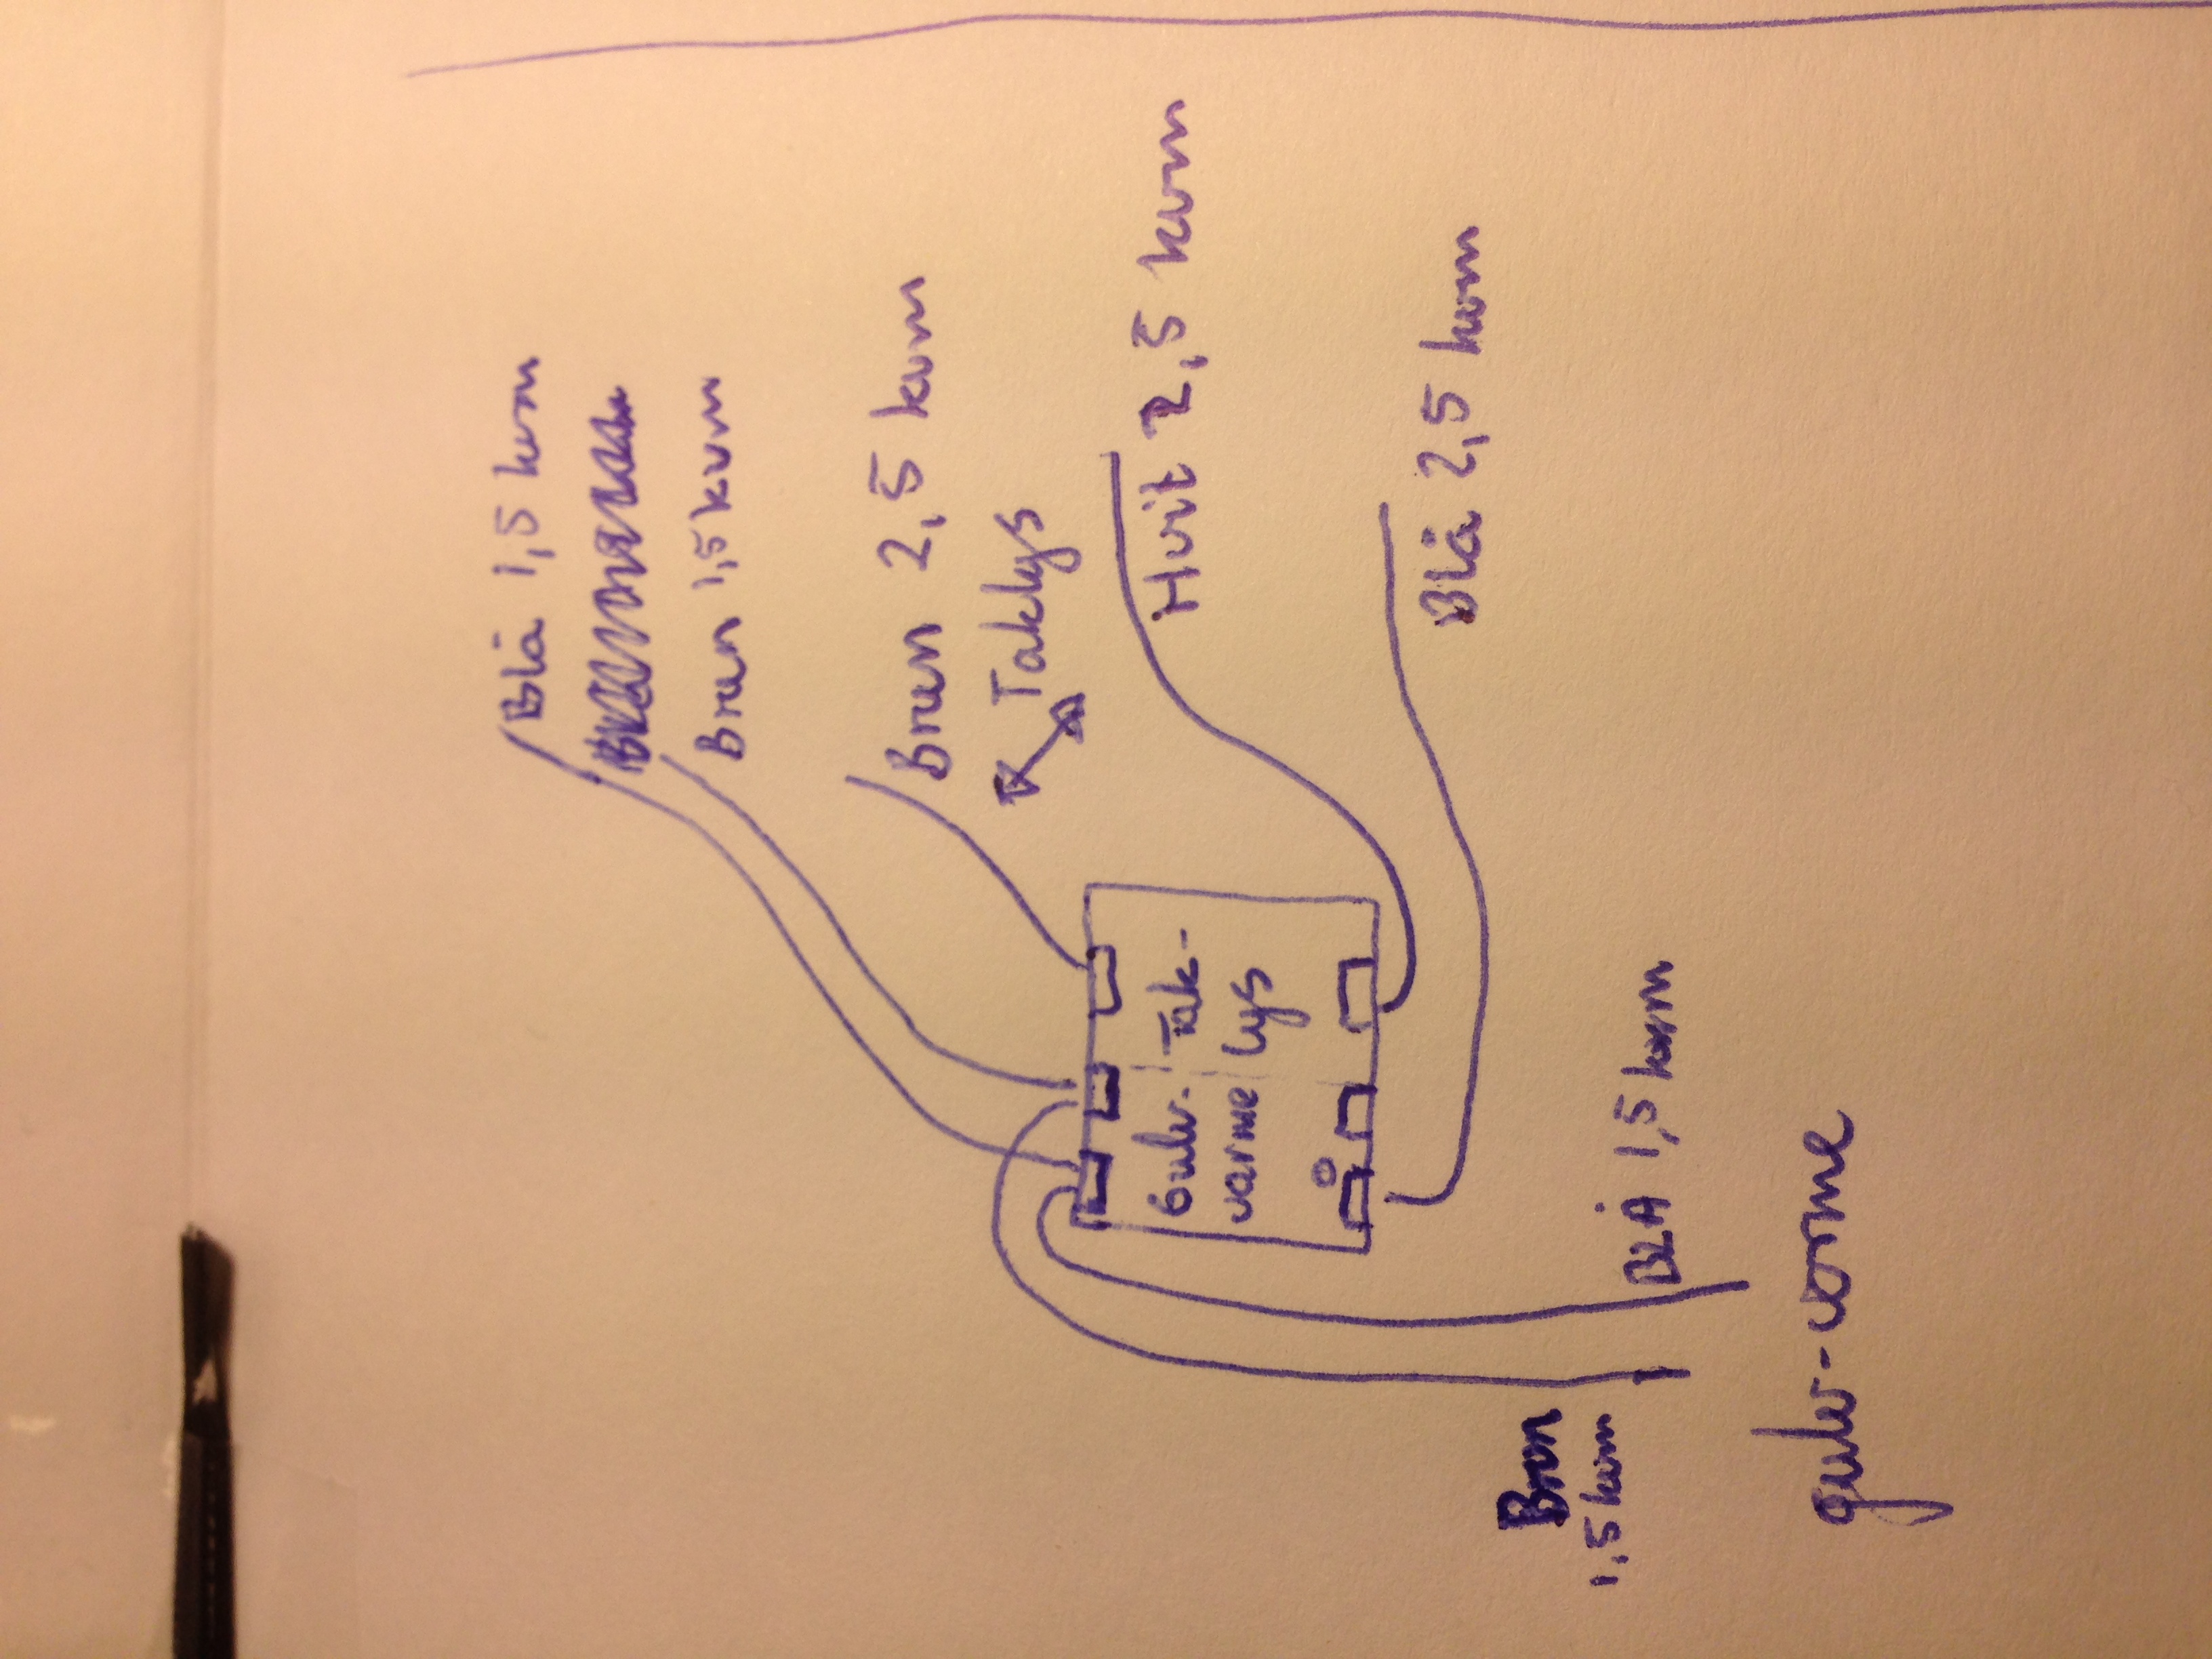 Blå 1,5 kvm
Brun 1,5 kvm
Brun 2,5 kvm
Taklys
Hvit 2,5 kvm
Blå 2,5 kvm
Gulv-
varme
Tak-
lys
BLÅ 1,5 kvm
Brun
1,5 kvm
gulv-varme